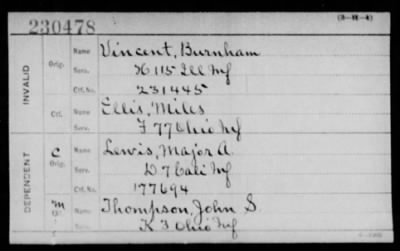 230478
(3-H-4)
INVALID
Orig. Name Vincent, Burnham
Serv. H 115 Ill Inf
Ctf. No. 231445
Ctf. Name Ellis, Miles
Serv. F 77 Ohio Inf
DEPENDENT
C Orig. Name Lewis, Major A.
Serv. D 7 Cali Inf
Ctf. No. 177694
m Ctf. Name Thompson, John S.
Serv. K 3 Ohio Inf